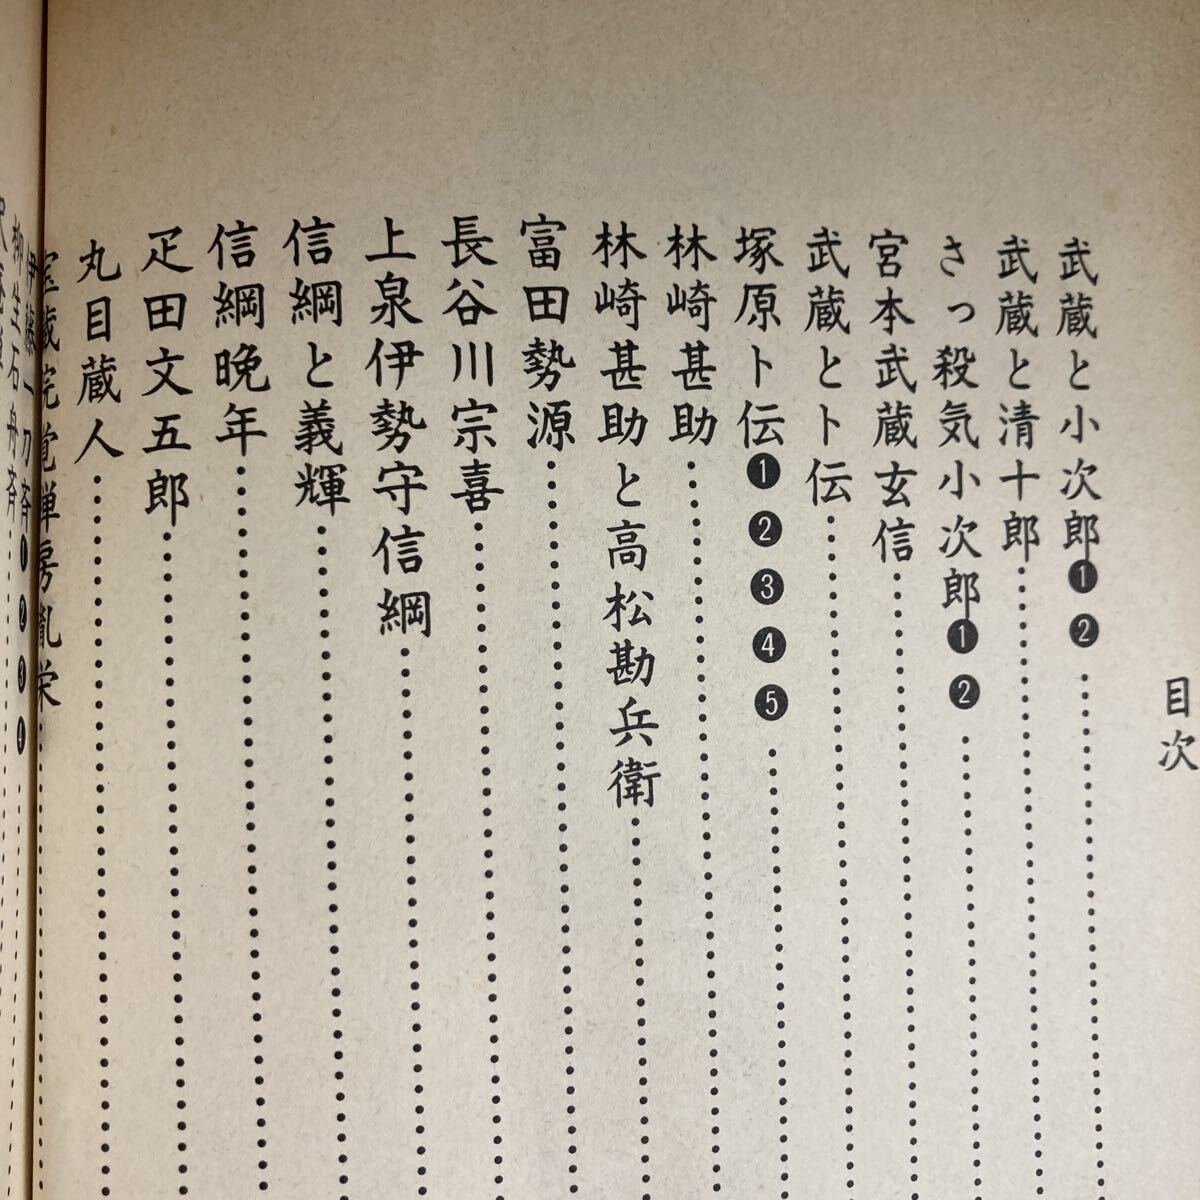 目次
武蔵と小次郎❶❷
武蔵と清十郎
さっ殺気小次郎❶❷
宮本武蔵玄信
武蔵と卜伝
塚原卜伝❶❷❸❹❺
林崎甚助
林崎甚助と高松勘兵衛
富田勢源
長谷川宗喜
上泉伊勢守信綱
信綱と義輝
信綱晩年
疋田文五郎
丸目蔵人
宝蔵院覚禅房胤栄
伊藤一刀斉❶❷❸❹
柳生石舟斉